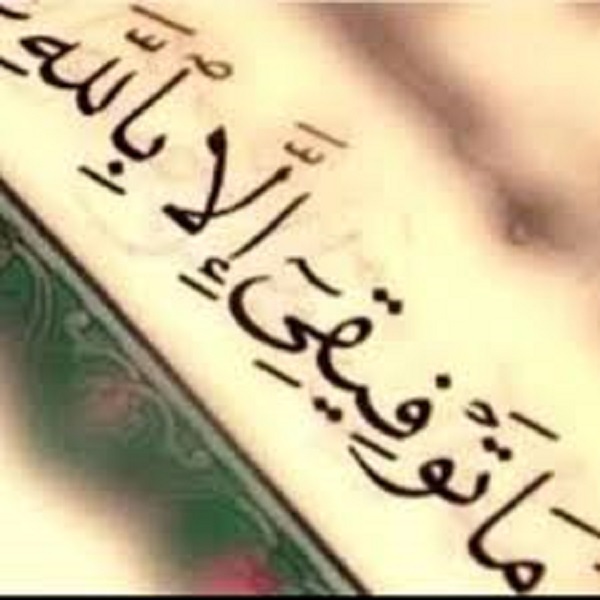 مَا تَوۡفِيقِيٓ إِلَّا بِٱللَّهِ